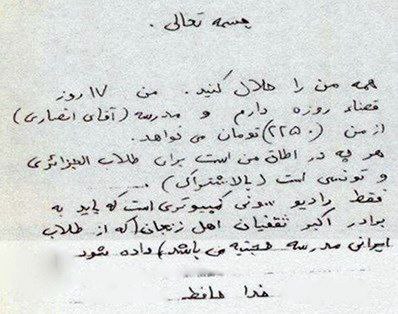 بسمه تعالی .
همه من را حلال کنید . من ۱۷ روز
قضاء روزه دارم و مدرسه (آقای انصاری)
از من (۲۲۵۰) تومان می خواهد .
هر چه در اطاق من است برای طلاب الجزائری
و تونسی است (بالاشتراک) .
فقط رادیو سونی کمپیوتری است که باید به
برادر اکبر ثقفیان اهل زنجان (که از طلاب
ایرانی مدرسه حجتیه می باشد) داده شود
خدا حافظ